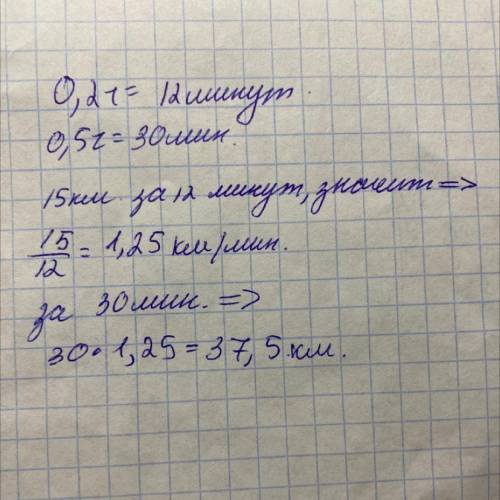 0,2ч = 12 минут.
0,5ч = 30 мин.
15 км за 12 минут, значит =>
15/12 = 1,25 км/мин.
за 30 мин. =>
30 · 1,25 = 37,5 км.